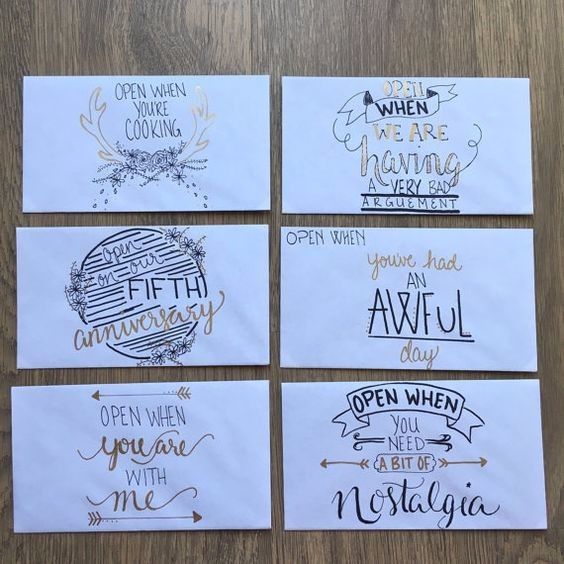 OPEN WHEN
YOU'RE
COOKING
OPEN
WHEN
WE ARE
having
A VERY BAD
ARGUEMENT
Open
on our
FIFTH
anniversary
OPEN WHEN
you've had
AN
AWFUL
day
OPEN WHEN
you are
WITH
me
OPEN WHEN
YOU
NEED
A BIT OF
nostalgia